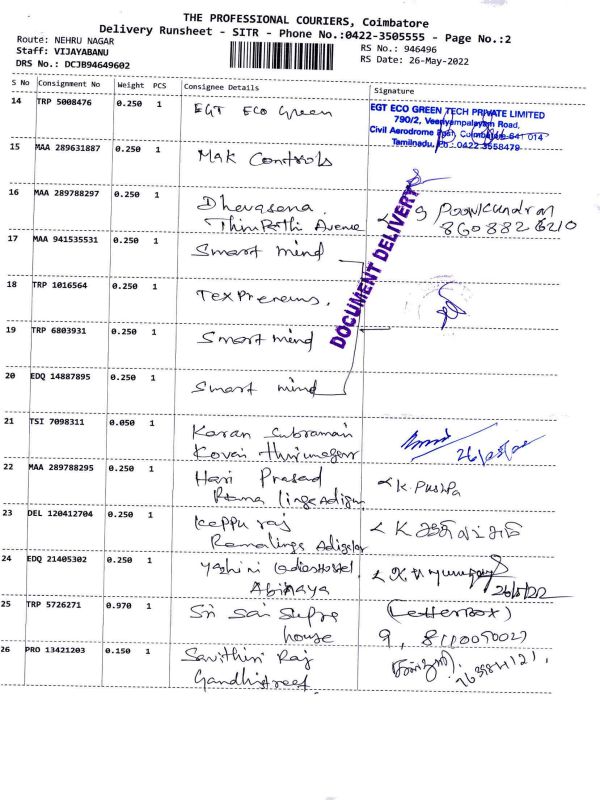 THE PROFESSIONAL COURIERS, Coimbatore
Delivery Runsheet - SITR - Phone No.:0422-3505555 - Page No.:2
Route: NEHRU NAGAR
Staff: VIJAYABANU
DRS No.: DCJB94649602
RS No.: 946496
RS Date: 26-May-2022
S No Consignment No Weight PCS Consignee Details Signature
14 TRP 5008476 0.250 1 EGT ECO Green
EGT ECO GREEN TECH PRIVATE LIMITED
790/2, Veeriyampalayam Road,
Civil Aerodrome Post, Coimbatore-641 014
Tamilnadu, Ph : 0422 3558479
15 MAA 289631887 0.250 1 Mak Controls
16 MAA 289788297 0.250 1 Dhevasena
Avenue
8608826210
DOCUMENT DELIVERY
17 MAA 941535531 0.250 1 Smart mind
18 TRP 1016564 0.250 1 Texpreneurs.
19 TRP 6803931 0.250 1 Smart mind
20 EDQ 14887895 0.250 1 Smart mind
21 TSI 7098311 0.050 1 Karan Subramani
Kovai Thirunagar
22 MAA 289788295 0.250 1 Hari Prasad
Rama linga Adigar
K. Pushpa
23 DEL 120412704 0.250 1 Keppu raj
Ramalinga Adigalar
24 EDQ 21405302 0.250 1 Yazhini Ladies Hostel
Abinaya
26/5/22
25 TRP 5726271 0.970 1 Sri Sai
house
(Letter Box)
26 PRO 13421203 0.150 1 Savithiri Raj
Gandhi street